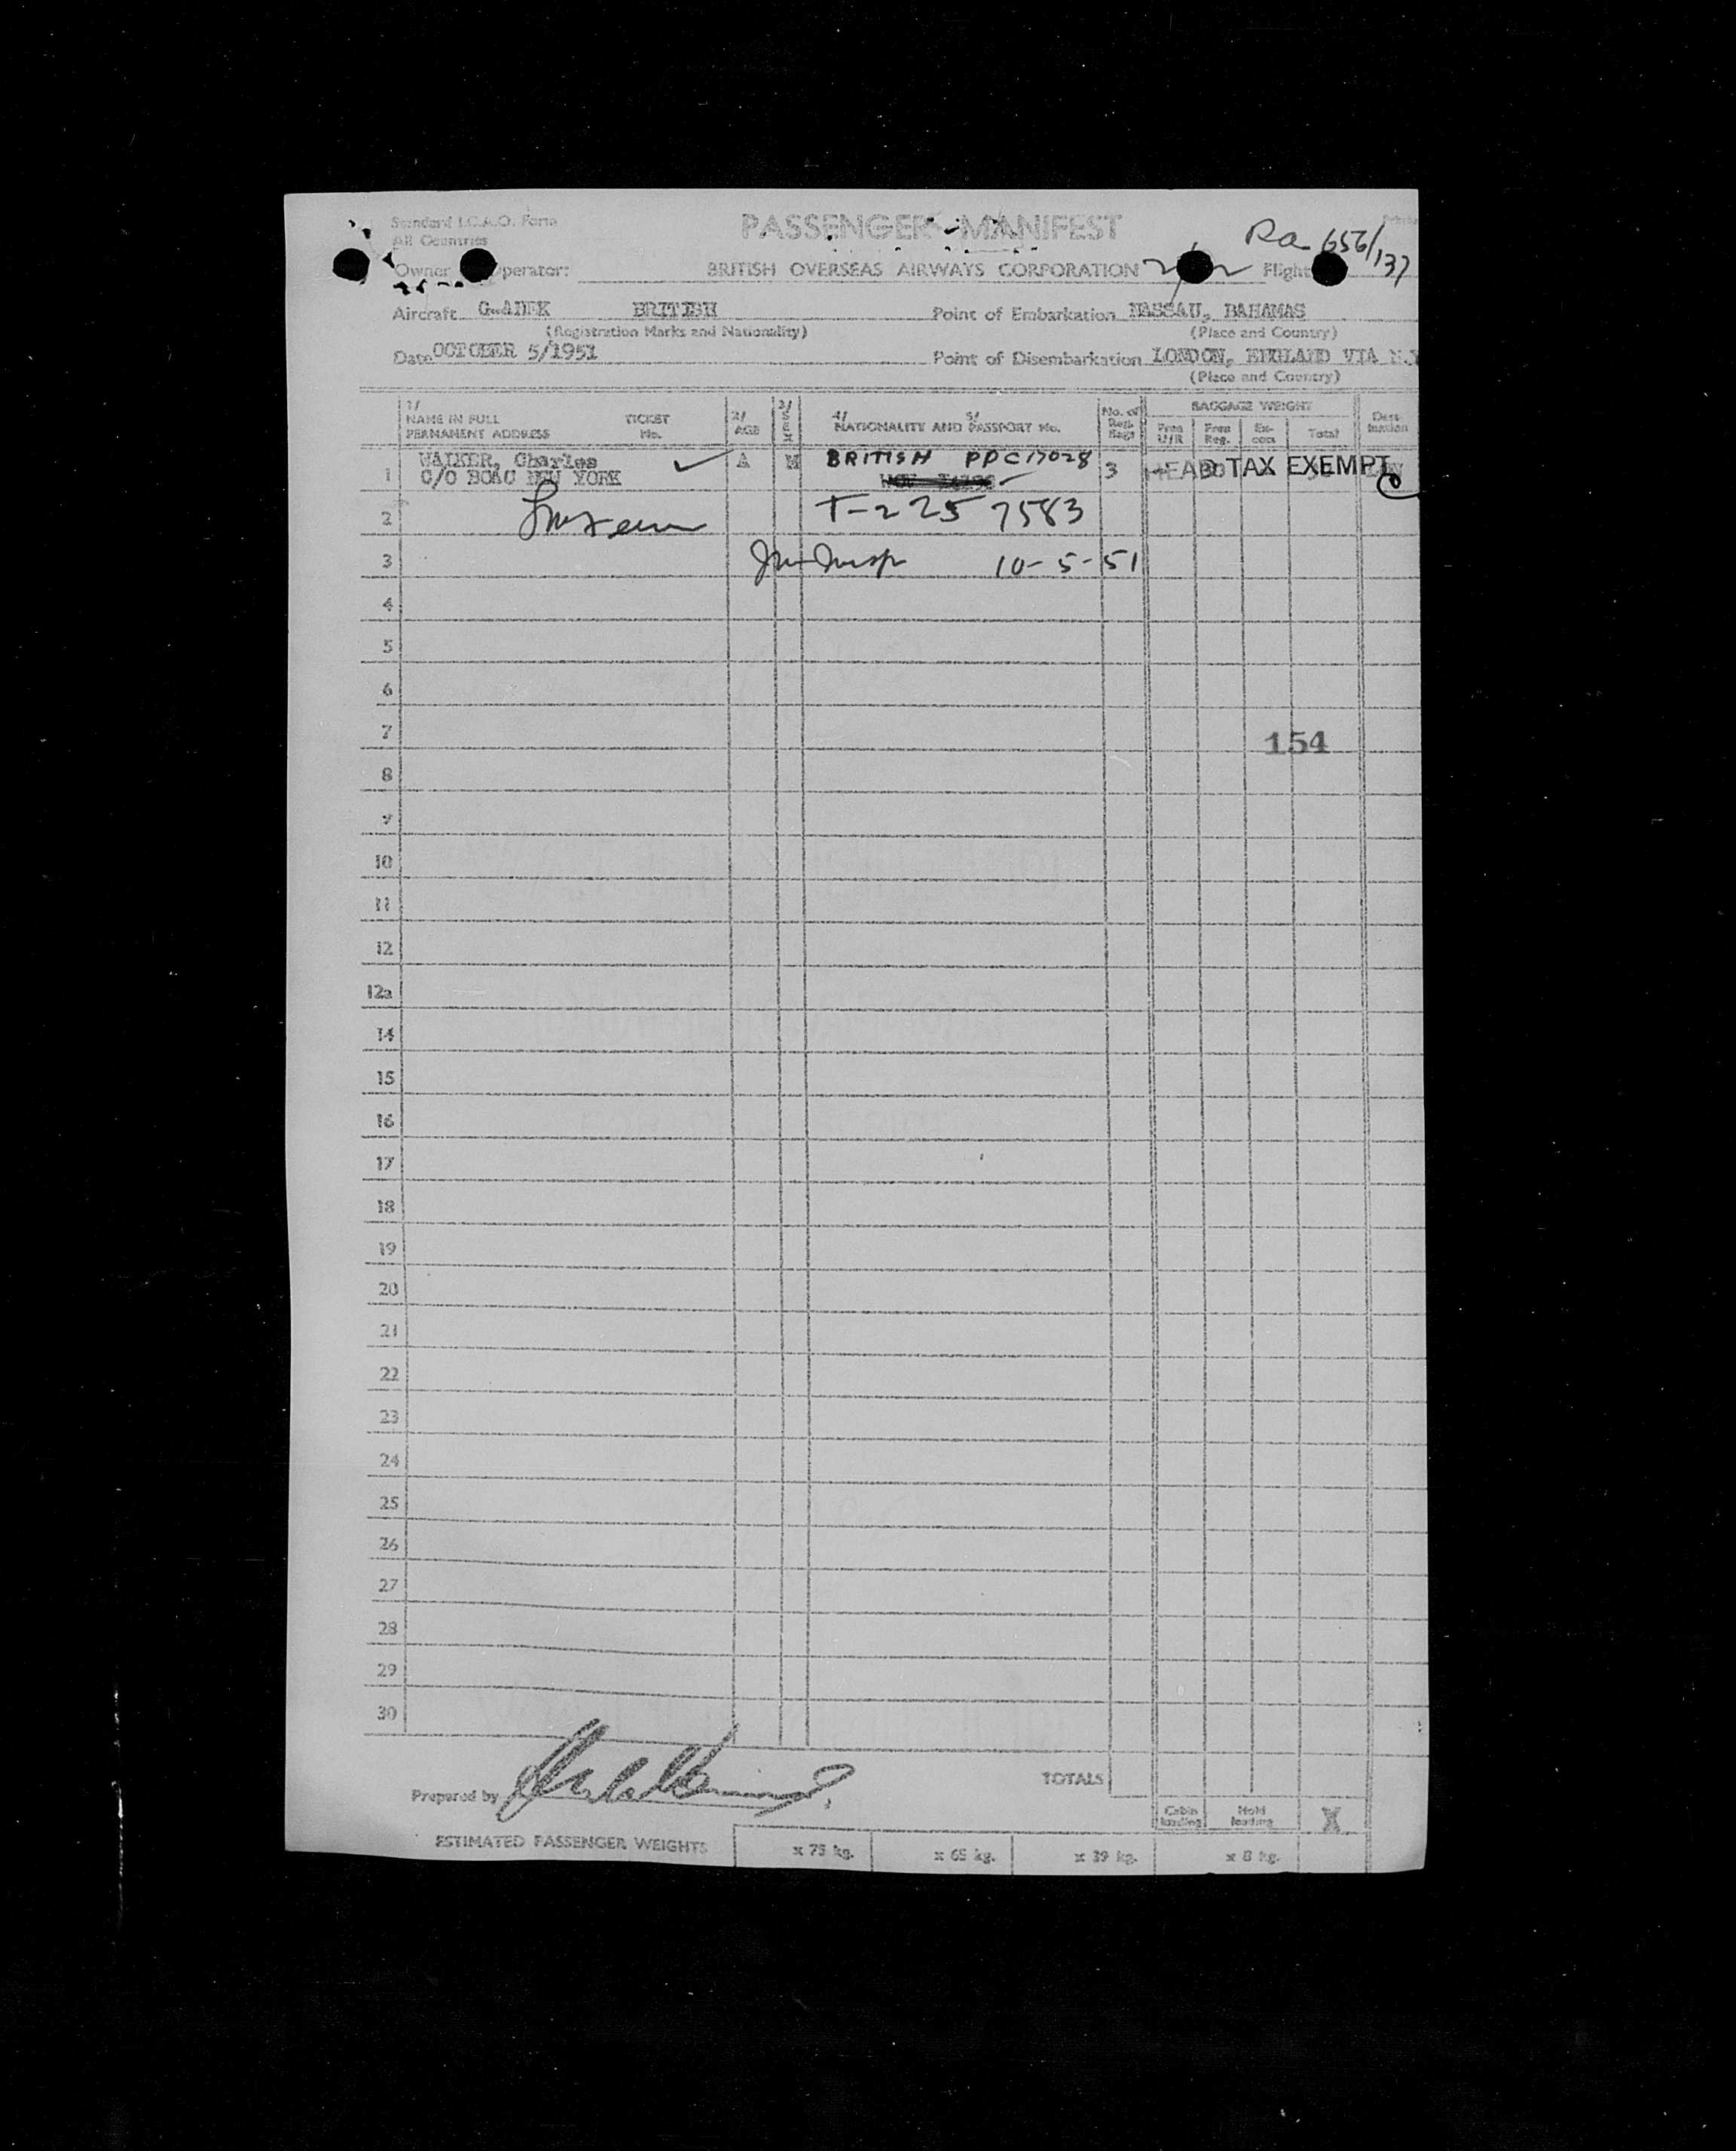 Standard I.C.A.O. Form
All Countries
PASSENGER MANIFEST
Ra 656/137
Owner Operator: BRITISH OVERSEAS AIRWAYS CORPORATION Flight
Aircraft BRITISH Point of Embarkation NASSAU, BAHAMAS
(Registration Marks and Nationality) (Place and Country)
Date OCTOBER 5/1951 Point of Disembarkation LONDON, ENGLAND VIA N.Y
(Place and Country)
1/ NAME IN FULL PERMANENT ADDRESS TICKET No. 2/ AGE 3/ SEX 4/ 5/ NATIONALITY AND PASSPORT No. No. of Reg. Bags BAGGAGE WEIGHT Free U/R Free Reg. Ex-cess Total Dest-ination
1 WALKER, Charles A M BRITISH PPC17028 3 HEAD TAX EXEMPT
C/O BOAC NEW YORK
2 T-225 7583
3 10-5-51
4
5
6
7 154
8
9
10
11
12
12a
14
15
16
17
18
19
20
21
22
23
24
25
26
27
28
29
30
TOTALS
Prepared by
Cabin loading Hold loading X
ESTIMATED PASSENGER WEIGHTS x 75 kg. x 65 kg. x 39 kg. x 8 kg.